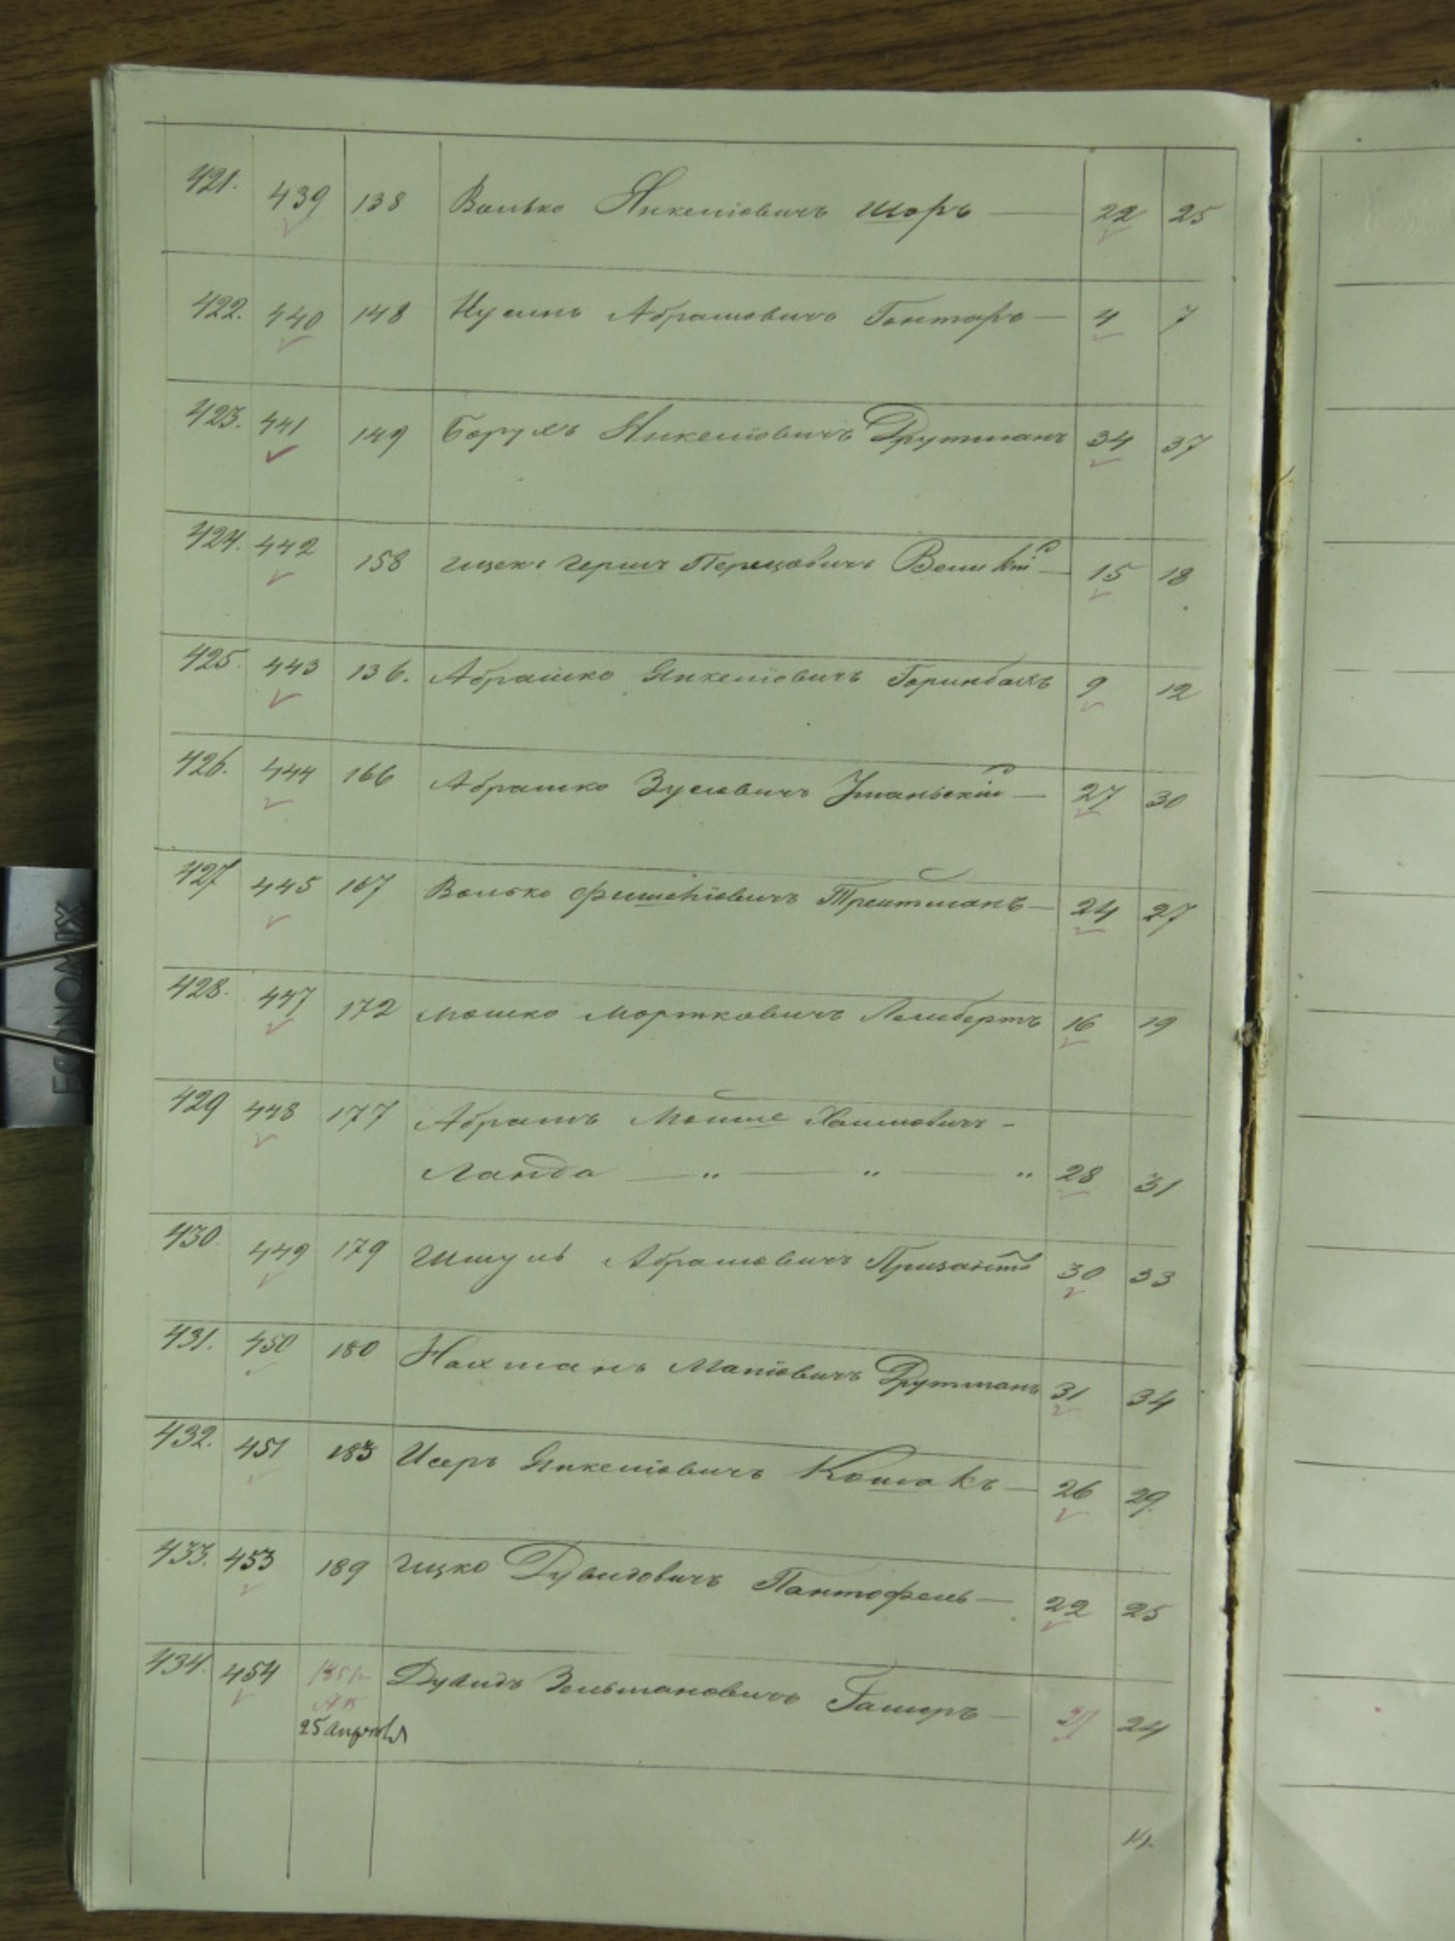 421. 439 138 Волько Янкелiовичъ Шоръ — 22 25
422. 440 148 Нусинъ Абрамовичъ Гонтаръ — 4 7
423. 441 149 Борухъ Янкелiовичъ Друтманъ 34 37
424. 442 158 Ицекъ Гершъ Перецовичъ 15 18
425. 443 136. Абрашко Янкелiовичъ 9 12
426. 444 166 Абрашко Зусевичъ Уманьскiй — 27 30
427 445 167 Волько Фишелiовичъ Трейтманъ — 24 27
428. 447 172 Мошко Мортковичъ 16 19
429 448 177 Абрамъ Мойше Хаимовичъ -
Ланда — „ — „ — „ 28 31
430 449 179 Шмуль Абрамовичъ Призантъ 30 33
431. 450 180 Нахманъ Друтманъ 31 34
432. 451 183 Исеръ Янкелiовичъ — 26 29.
433. 453 189 Ицко Дувидовичъ Пантофель — 22 25
434. 454 Дувидъ Зельмановичъ — 21 24
25 апреля
ECONOMIX